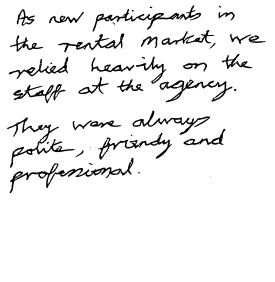 As new participants in
the rental market, we
relied heavily on the
staff at the agency.
They were always
polite, friendly and
professional.